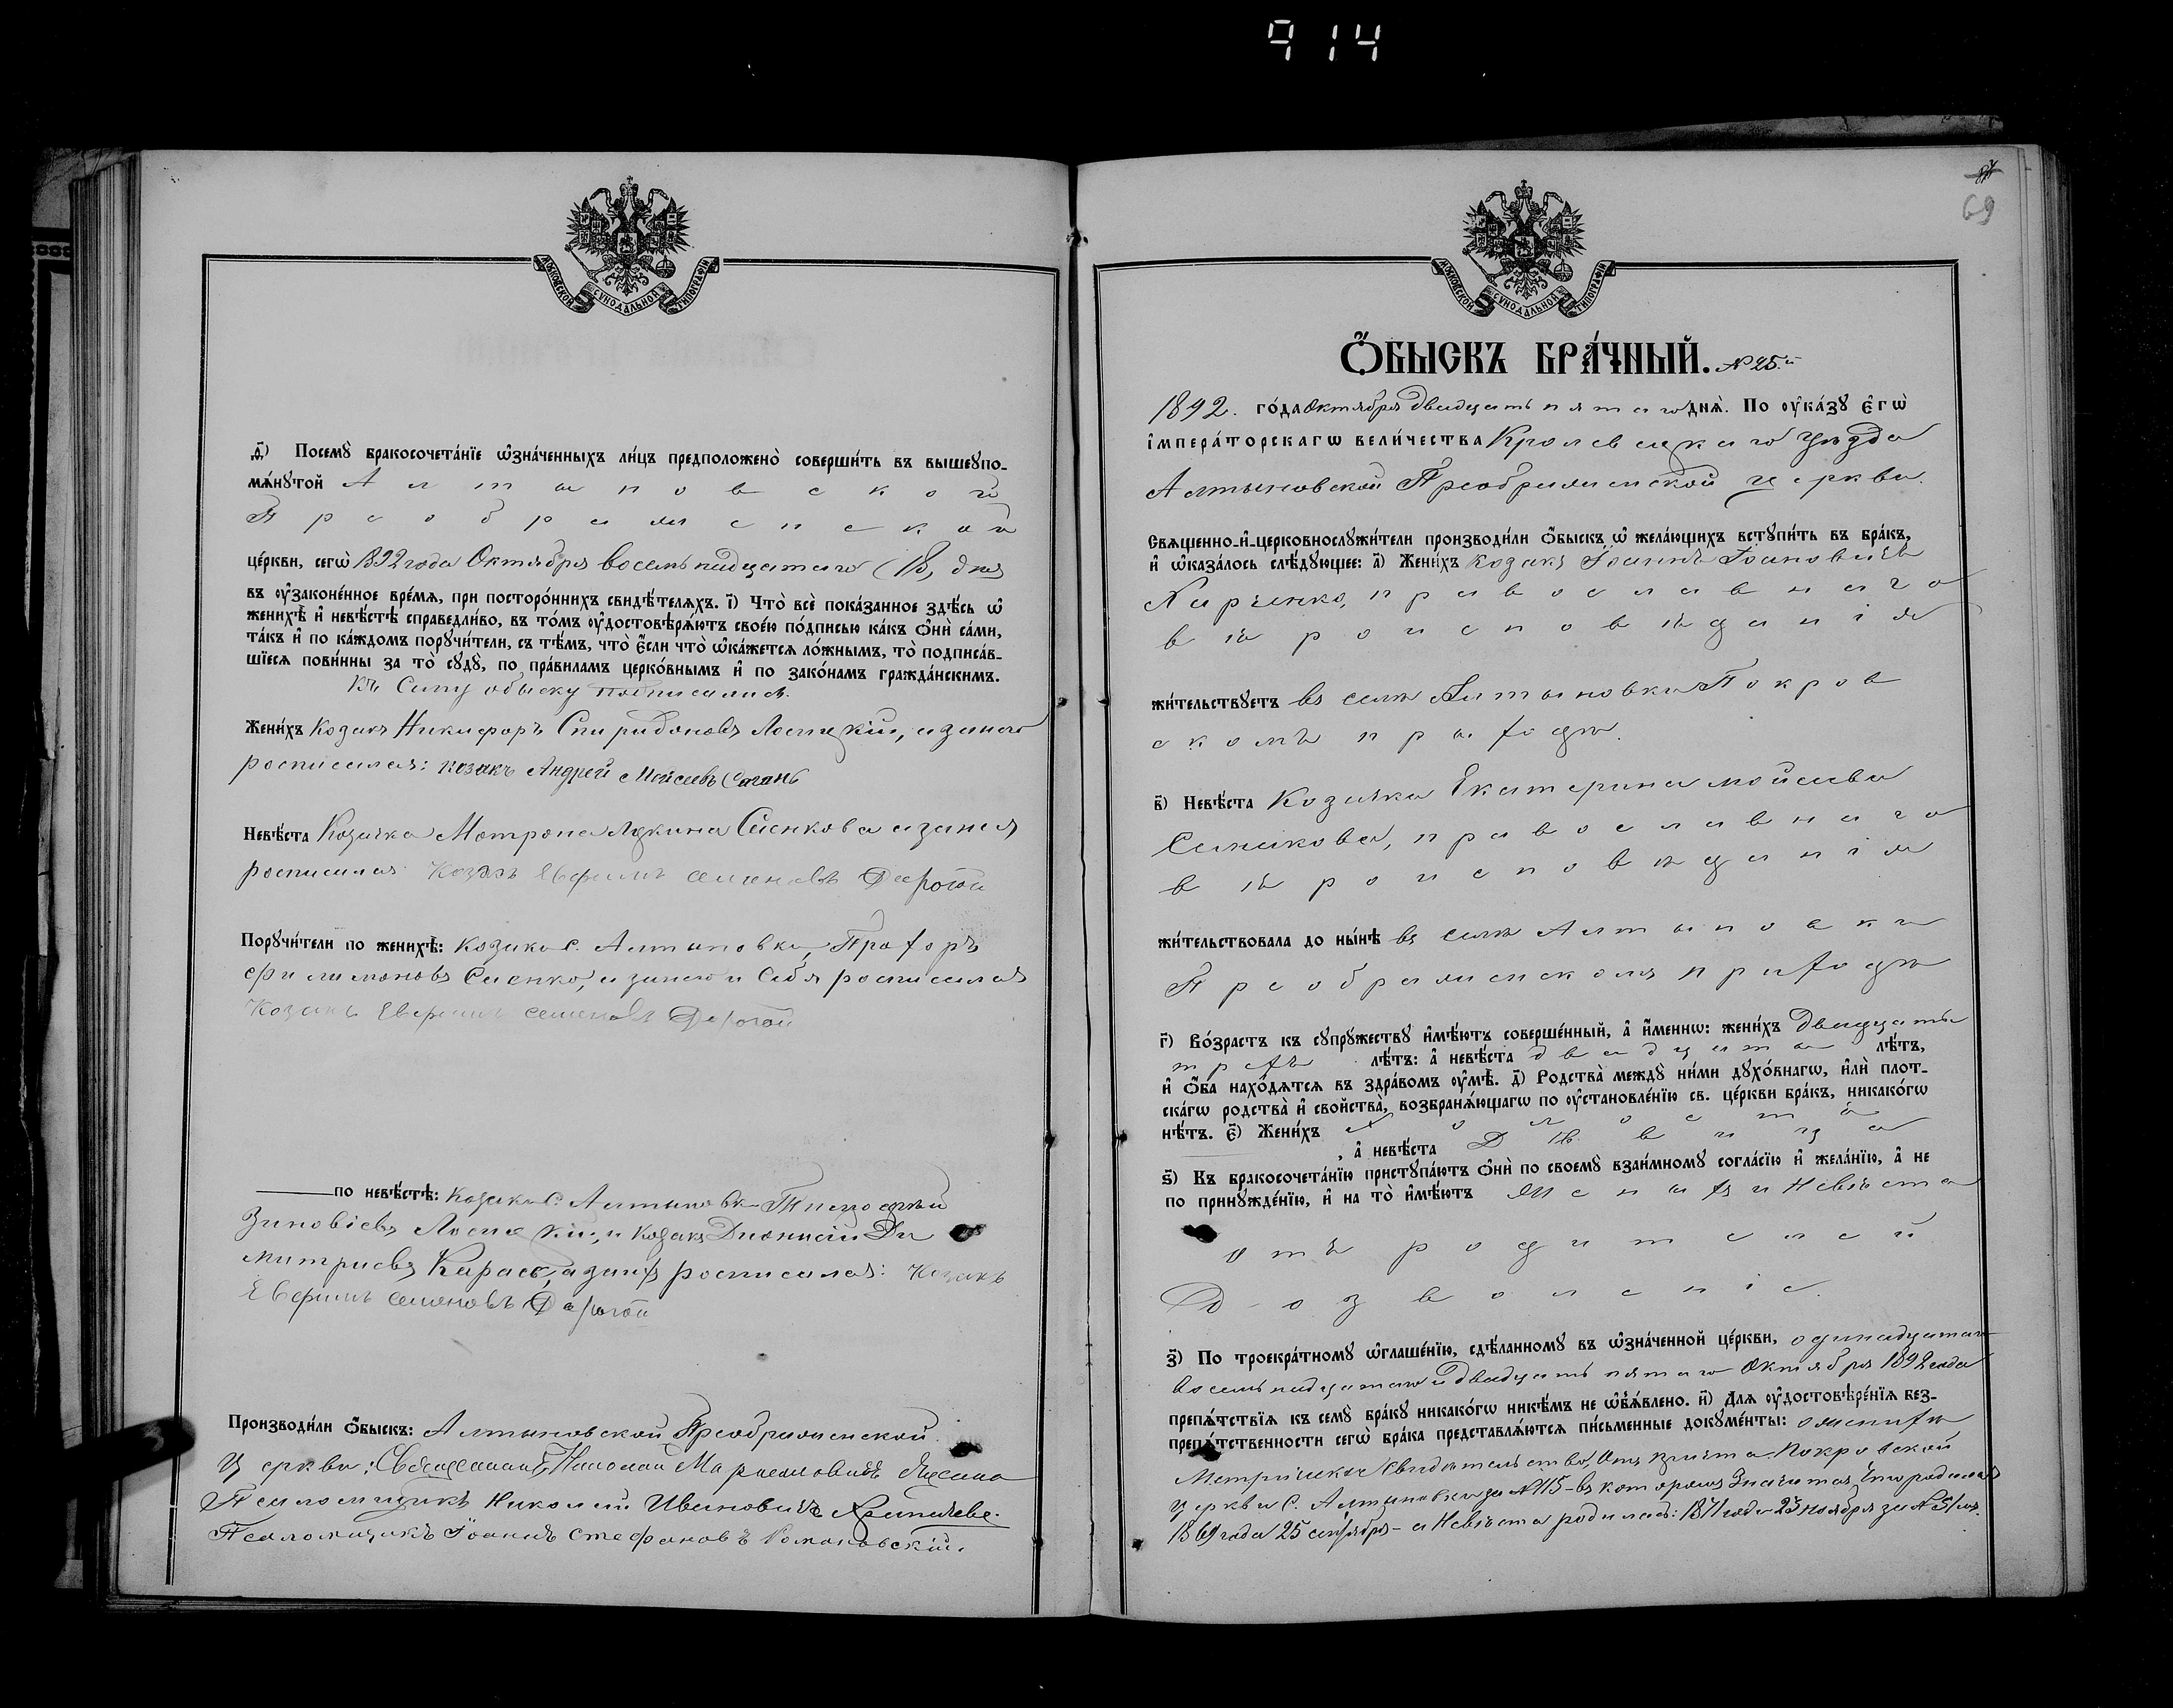 914
69
МОСКОВСКОЙ СѴНОДАЛЬНОЙ ТИПОГРАФІИ
ѳ҃) Посемꙋ̀ бракосочета́нїе ѡ҆зна́ченныхъ ли́цъ предположено̀ соверши́ть въ вышеупо-
мѧ́нꙋтой Алтыновской
Преображенской
це́ркви, сегѡ̀ 1892 года Октября восемнадцатаго (18) дня
въ ᲂу҆зако́ненное вре́мѧ, при посторо́ннихъ свидѣ́телѧхъ. і҃) Что̀ всѐ пока́занное здѣ́сь ѡ҆
женихѣ̀ и҆ невѣ́стѣ справедли́во, въ то́мъ ᲂу҆достовѣрѧ́ютъ свое́ю по́дписью ка́къ ѻ҆нѝ са́ми,
та́къ и҆ по ка́ждомъ порꙋчи́тели, съ тѣ́мъ, что̀ є҆́сли что̀ ѡ҆ка́жетсѧ ло́жнымъ, то̀ подписа́в-
шїесѧ пови́нны за то̀ сꙋдꙋ̀, по пра́виламъ церко́внымъ и҆ по зако́намъ гражда́нскимъ.
Къ Сему обыску подписались.
Жени́хъ Козакъ Никифоръ Спиридоновъ Лосицкій, а занего
росписался: козакъ Андрей Моисеевъ Саганъ
Невѣ́ста Козачка Мотрона Лукина Саенкова а занея
росписался Козакъ Евфимъ семеновъ Дорогой
Порꙋчи́тели по женихѣ̀: Козаки С. Алтыновки, Прохоръ
Филимоновъ Саенко, а занего и Себя росписался
Козакъ Евфимъ семеновъ Дорогой
по невѣ́стѣ: Козаки С. Алтыновки Тимофей
Зиновіевъ Лосицкій, и козакъ Дионисій Ди
митріевъ Карась, а заних росписался: Козакъ
Евфимъ семеновъ Дорогой
Производи́ли ѻ҆́быскъ: Алтыновской Преображенской
Церкви: Священникъ Николай
Псаломщикъ Николай Ивановичъ
Псаломщикъ Іоаннъ Стефановъ Романовскій.
МОСКОВСКОЙ СѴНОДАЛЬНОЙ ТИПОГРАФІИ
Ѻ҆́БЫСКЪ БРА́ЧНЫЙ. № 25.й
1892. го́да Октября двадцать пятаго днѧ̀. По ᲂу҆ка́зꙋ є҆гѡ̀
і҆мпера́торскагѡ вели́чества Кролевецкаго уѣзда
Алтыновской Преображенской церкви.
Свѧщенно-и҆-церковнослꙋжи́тели производи́ли ѻ҆́быскъ ѡ҆ жела́ющихъ встꙋпи́ть въ бра́къ,
и҆ ѡ҆каза́лось слѣ́дꙋющее: а҃) Жени́хъ Козакъ Іоаннъ Іоановичъ
Харченко, православнаго
вѣроисповѣданія
жи́тельствꙋетъ въ селѣ Алтыновки Покров
скомъ приходѣ.
в҃) Невѣ́ста Козачка Екатерина Моисеева
православнаго
вѣроисповѣданія
жи́тельствовала до ны́нѣ въ селѣ Алтыновки
Преображенскомъ приходѣ
г҃) Во́зрастъ къ сꙋпрꙋ́жествꙋ и҆мѣ́ютъ соверше́нный, а҆ и҆́меннѡ: жени́хъ двадцать
трехъ лѣ́тъ: а҆ невѣ́ста двадцати лѣ́тъ,
и҆ ѻ҆́ба нахо́дѧтсѧ въ здра́вомъ ᲂу҆мѣ̀. д҃) Родства̀ междꙋ̀ ни́ми дꙋхо́внагѡ, и҆лѝ плот-
ска́гѡ родства̀ и҆ свойства̀, возбранѧ́ющагѡ по ᲂу҆становле́нїю св. це́ркви бра́къ, никако́гѡ
нѣ́тъ. є҃) Жени́хъ холостъ
, а҆ невѣ́ста Дѣвица
ѕ҃) Къ бракосочета́нїю пристꙋпа́ютъ ѻ҆нѝ по своемꙋ̀ взаи́мномꙋ согла́сїю и҆ жела́нїю, а҆ не
по принꙋжде́нїю, и҆ на то̀ и҆мѣ́ютъ Женихъ и Невѣста
отъ родителей
Дозволеніе.
з҃) По троекра́тномꙋ ѡ҆глаше́нїю, сдѣ́ланномꙋ въ ѡ҆зна́ченной це́ркви, одинадцатаго
восемнадцатаго и двадцать пятаго Октября 1892 года
препѧ́тствїѧ къ семꙋ̀ бра́кꙋ никако́гѡ никѣ́мъ не ѡ҆б̾ѧ́влено. и҃) Длѧ ᲂу҆достовѣре́нїѧ без-
препѧ́тственности сегѡ̀ бра́ка представлѧ́ютсѧ пи́сьменные докꙋме́нты: о женихѣ
Метрическое Свидѣтельство, отъ причта Покровской
церкви С. Алтыновки за № 115 – въ которомъ Значится, что родился
1869 года 25 сентября – а Невѣста родилась: 1871 года 25 ноября за № 51